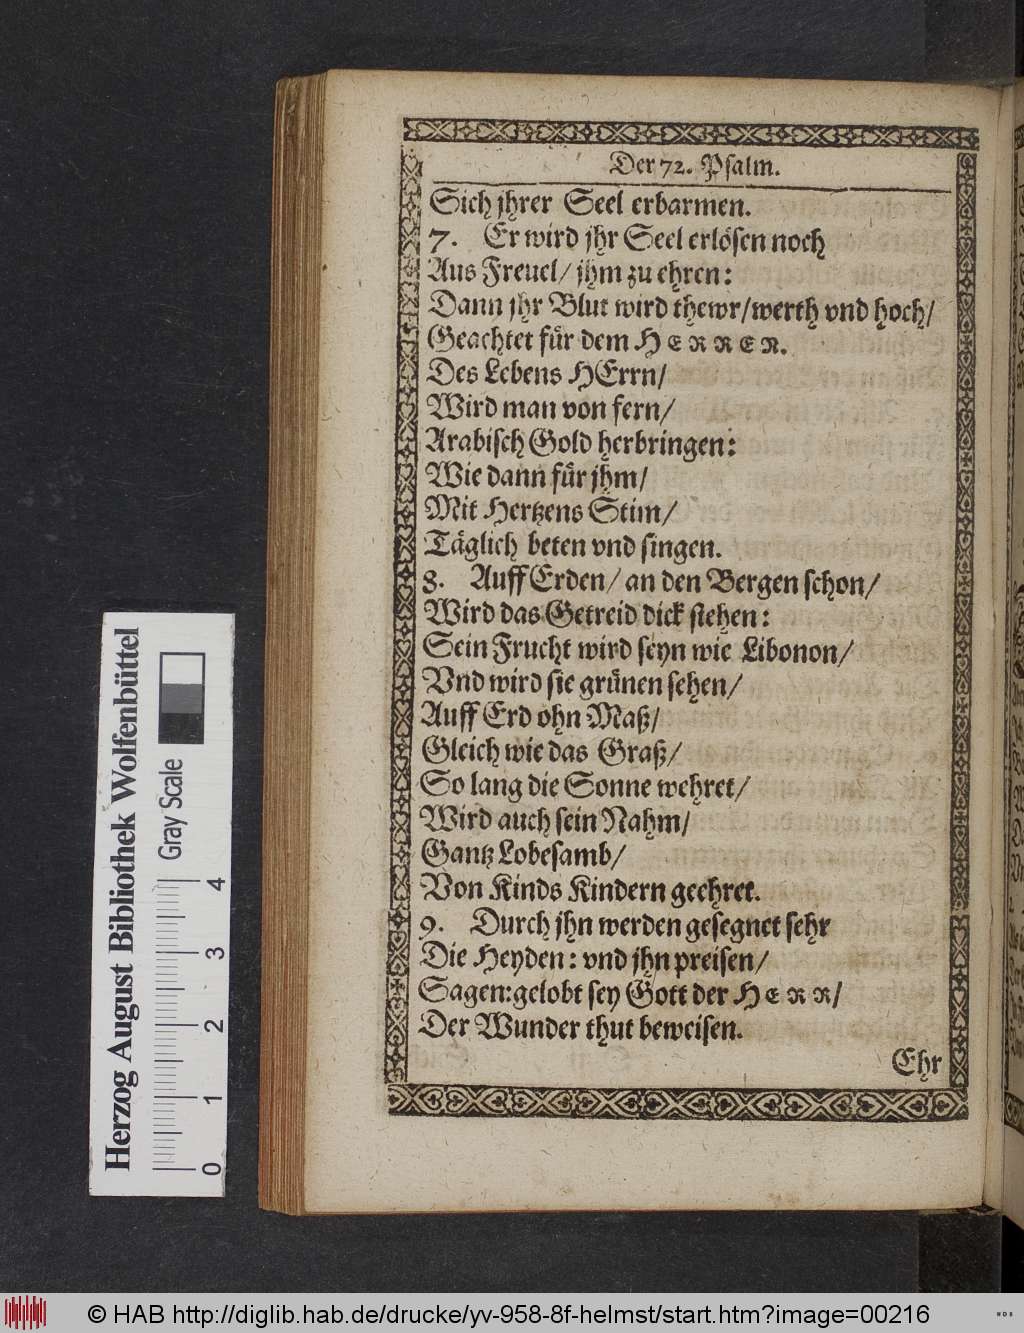 Der 72. Psalm.
Sich jhrer Seel erbarmen.
7. Er wird jhr Seel erlösen noch
Aus Freuel/ jhm zu ehren:
Dann jhr Blut wird thewr/werth vnd hoch/
Geachtet für dem HERREN.
Des Lebens HErrn/
Wird man von fern/
Arabisch Gold herbringen:
Wie dann für jhm/
Mit Hertzens Stim/
Täglich beten vnd singen.
8. Auff Erden/ an den Bergen schon/
Wird das Getreid dick stehen:
Sein Frucht wird seyn wie Libonon/
Vnd wird sie grünen sehen/
Auff Erd ohn Maß/
Gleich wie das Graß/
So lang die Sonne wehret/
Wird auch sein Nahm/
Gantz Lobesamb/
Von Kinds Kindern geehret.
9. Durch jhn werden gesegnet sehr
Die Heyden: vnd jhn preisen/
Sagen:gelobt sey Gott der HERR/
Der Wunder thut beweisen.
Ehr
Herzog August Bibliothek Wolfenbüttel
Gray Scale
0 1 2 3 4
© HAB http://diglib.hab.de/drucke/yv-958-8f-helmst/start.htm?image=00216